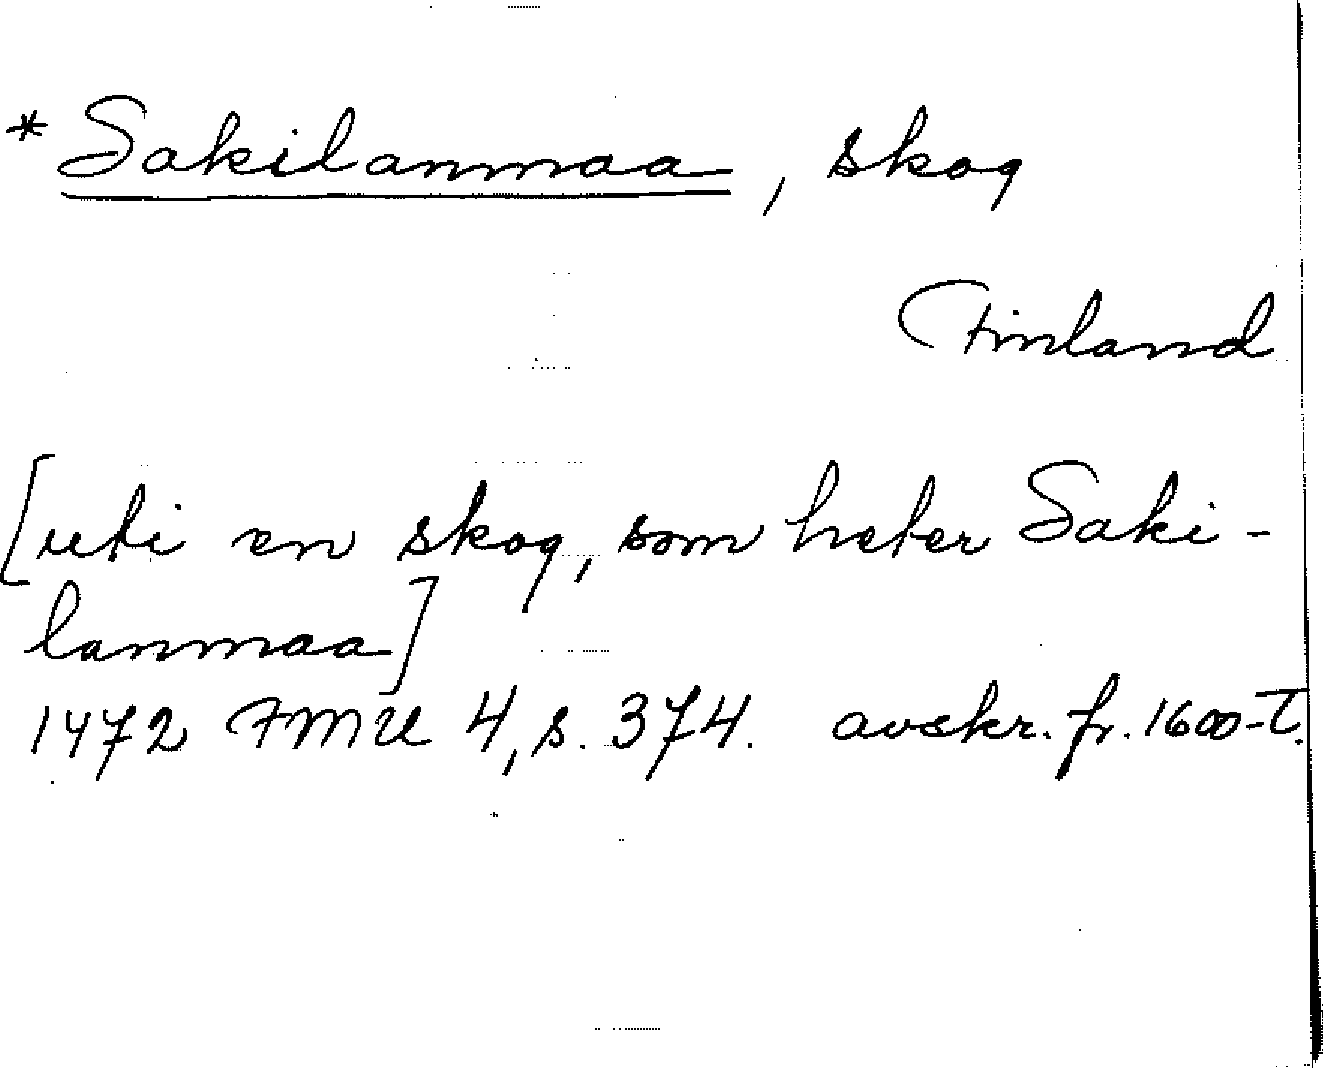 *Sakilanmaa, skog
Finland
[uti en skog, som heter Saki-
lanmaa]
1472 FMU 4, s. 374. avskr. fr. 1600-T.